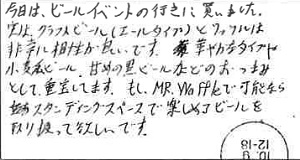 今日は、ビールイベントの行きに買いました。
実は、クラフトビール(エールタイプ)とワッフルは
非常に相性が良いです。華やかなタイプや
小麦系ビール、甘めの黒ビールなどのおつまみ
として重宝してます。もし、MR.Waffleで可能なら
スタンディングスペースで楽しめるビールを
取り扱って欲しいです。
10.9
12-18